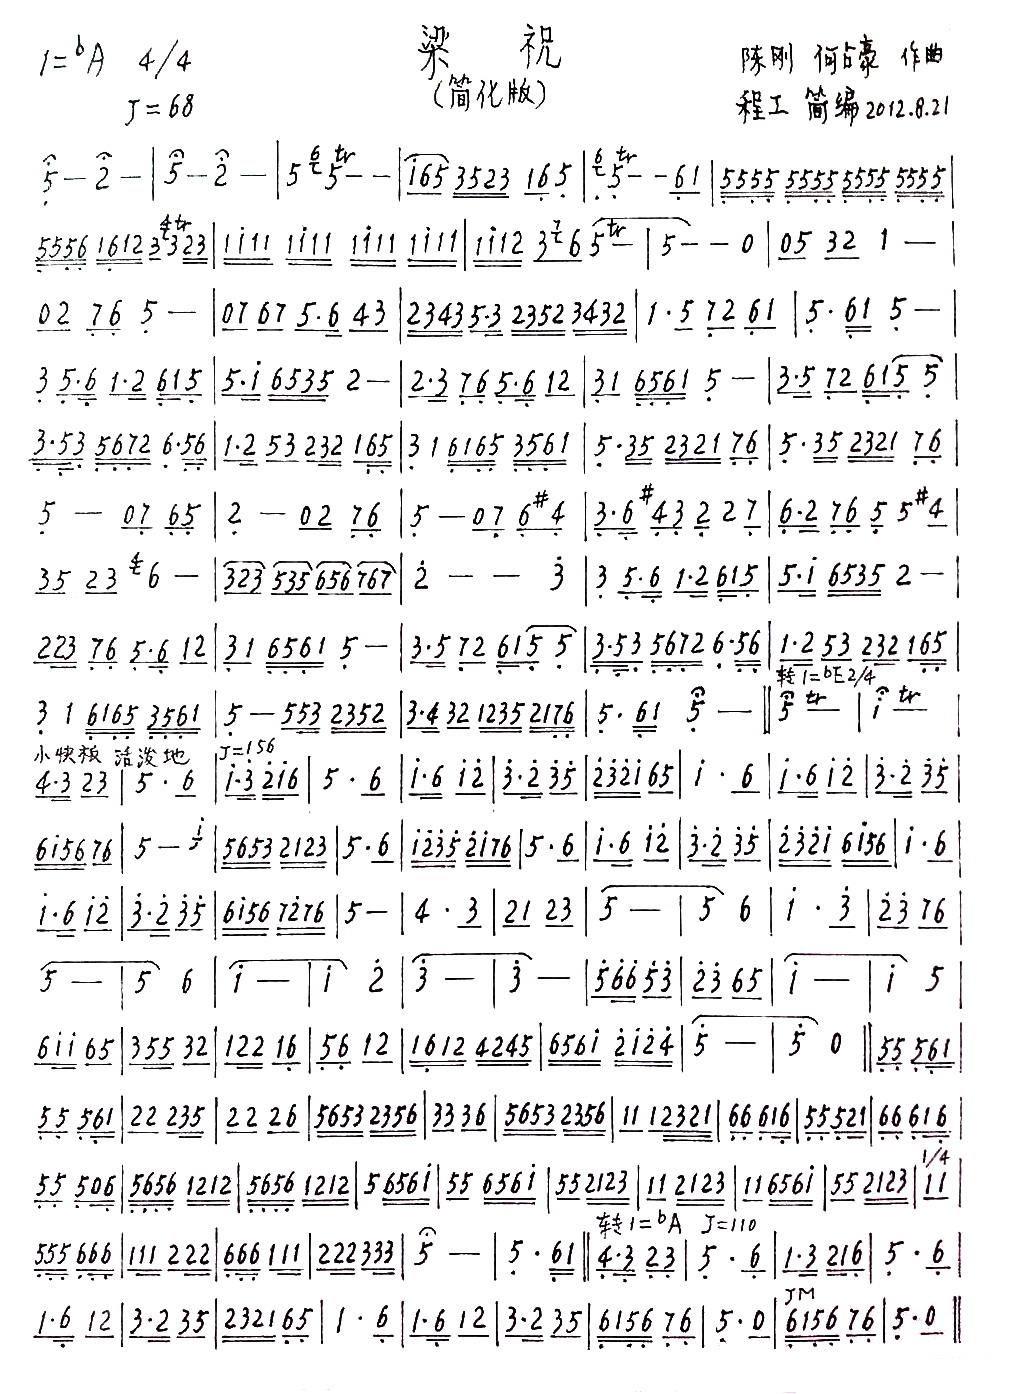 梁 祝
1=ᵇA 4/4
(简化版)
陈刚 何占豪 作曲
♩=68
程工 简编 2012.8.21
5 - 2 - | 5 - 2 - | 5 6 5 tr - - | i65 3523 165 | 6 5 tr - - 61 | 5555 5555 5555 5555 |
5556 1612 3 4 3 tr 23 | 1i11 1i11 1i11 1i11 | 1i12 3 7 6 5 tr - | 5 - - 0 | 05 32 1 - |
02 76 5 - | 07 67 5·6 43 | 2343 5·3 2352 3432 | 1·5 72 61 | 5·61 5 - |
3 5·6 1·2 615 | 5·i 6535 2 - | 2·3 76 5·6 12 | 31 6561 5 - | 3·5 72 615 5 |
3·53 5672 6·56 | 1·2 53 232 165 | 3 1 6165 3561 | 5·35 2321 76 | 5·35 2321 76 |
5 - 07 65 | 2 - 02 76 | 5 - 07 6#4 | 3·6 #43 2 2 7 | 6·2 76 5 5#4 |
35 23 4 6 - | 323 535 656 767 | 2 - - 3 | 3 5·6 1·2 615 | 5·i 6535 2 - |
223 76 5·6 12 | 31 6561 5 - | 3·5 72 615 5 | 3·53 5672 6·56 | 1·2 53 232 165 |
转1=ᵇE 2/4
3 1 6165 3561 | 5 - 553 2352 | 3·4 32 1235 2176 | 5·61 5 - ‖ 5 tr - | i tr - |
小快板 活泼地 ♩=156
4·3 23 | 5·6 | i·3 2i6 | 5·6 | i·6 i2 | 3·2 35 | 232i 65 | i·6 | i·6 i2 | 3·2 35 |
6i56 76 | 5 - i | 5653 2123 | 5·6 | i235 2i76 | 5·6 | i·6 i2 | 3·2 35 | 232i 6i56 | i·6 |
i·6 i2 | 3·2 35 | 6i56 7276 | 5 - | 4·3 | 21 23 | 5 - | 5 6 | i·3 | 23 76 |
5 - | 5 6 | i - | i 2 | 3 - | 3 - | 566 53 | 23 65 | i - | i 5 |
6ii 65 | 355 32 | 122 16 | 56 12 | 1612 4245 | 656i 2i24 | 5 - | 5 0 ‖ 55 561 |
55 561 | 22 235 | 22 26 | 5653 2356 | 33 36 | 5653 2356 | 11 12321 | 66 616 | 55 521 | 66 616 |
1/4
55 506 | 5656 1212 | 5656 1212 | 5 656i | 55 656i | 55 2123 | 11 2123 | 11 656i | 55 2123 | 11 |
转1=ᵇA ♩=110
555 666 | 111 222 | 666 111 | 222 333 | 5 - | 5·61 ‖ 4·3 23 | 5·6 | 1·3 216 | 5·6 |
JM
1·6 12 | 3·2 35 | 2321 65 | 1·6 | 1·6 12 | 3·2 35 | 6156 76 | 5·0 | 6156 76 | 5·0 ‖